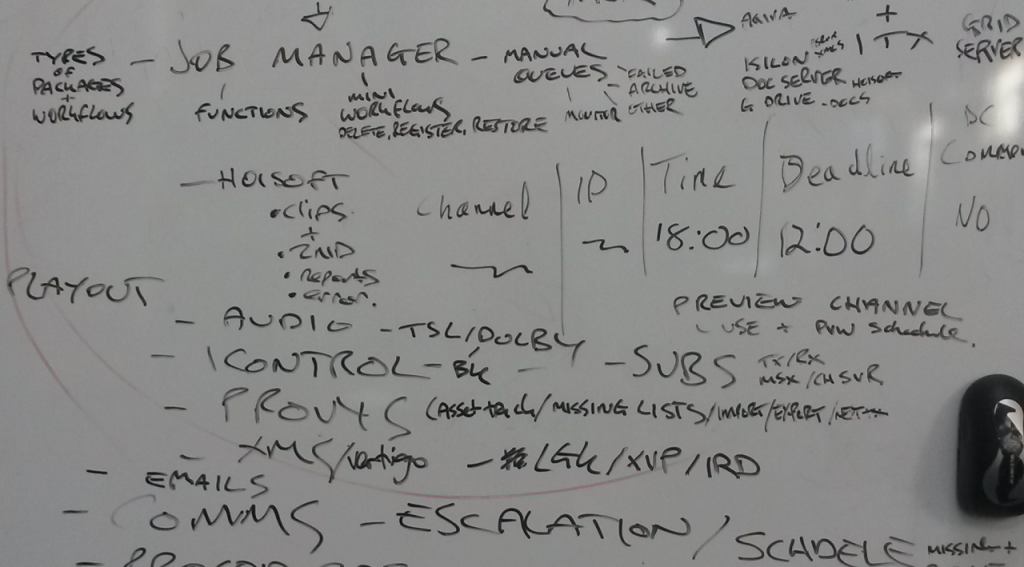 TYPES OF PACKAGES + WORKFLOWS
- JOB MANAGER - MANUAL QUEUES
- FAILED
- ARCHIVE
OTHER
MONITOR
FUNCTIONS
MINI WORKFLOWS
DELETE, REGISTER, RESTORE
→ AQIVA
ISILON
DOC SERVER
G DRIVE - DOCS
+
ITX
GRID SERVER
- HCISOFT
• CLIPS
+
• 2ND
• Reports
• error.
Channel | ID | Time | Deadline | DC
18:00 | 12:00 | NO
PLAYOUT
PREVIEW CHANNEL
USE + PVW Schedule.
- AUDIO - TSL/DOLBY
- ICONTROL -
- SUBS TX/RX
- PROVYS (Asset track/MISSING LISTS/IMPORT/EXPORT/
- XMS/Vertigo - LGK/XVP/IRD
- EMAILS
- COMMS - ESCALATION/SCHDELE MISSING +